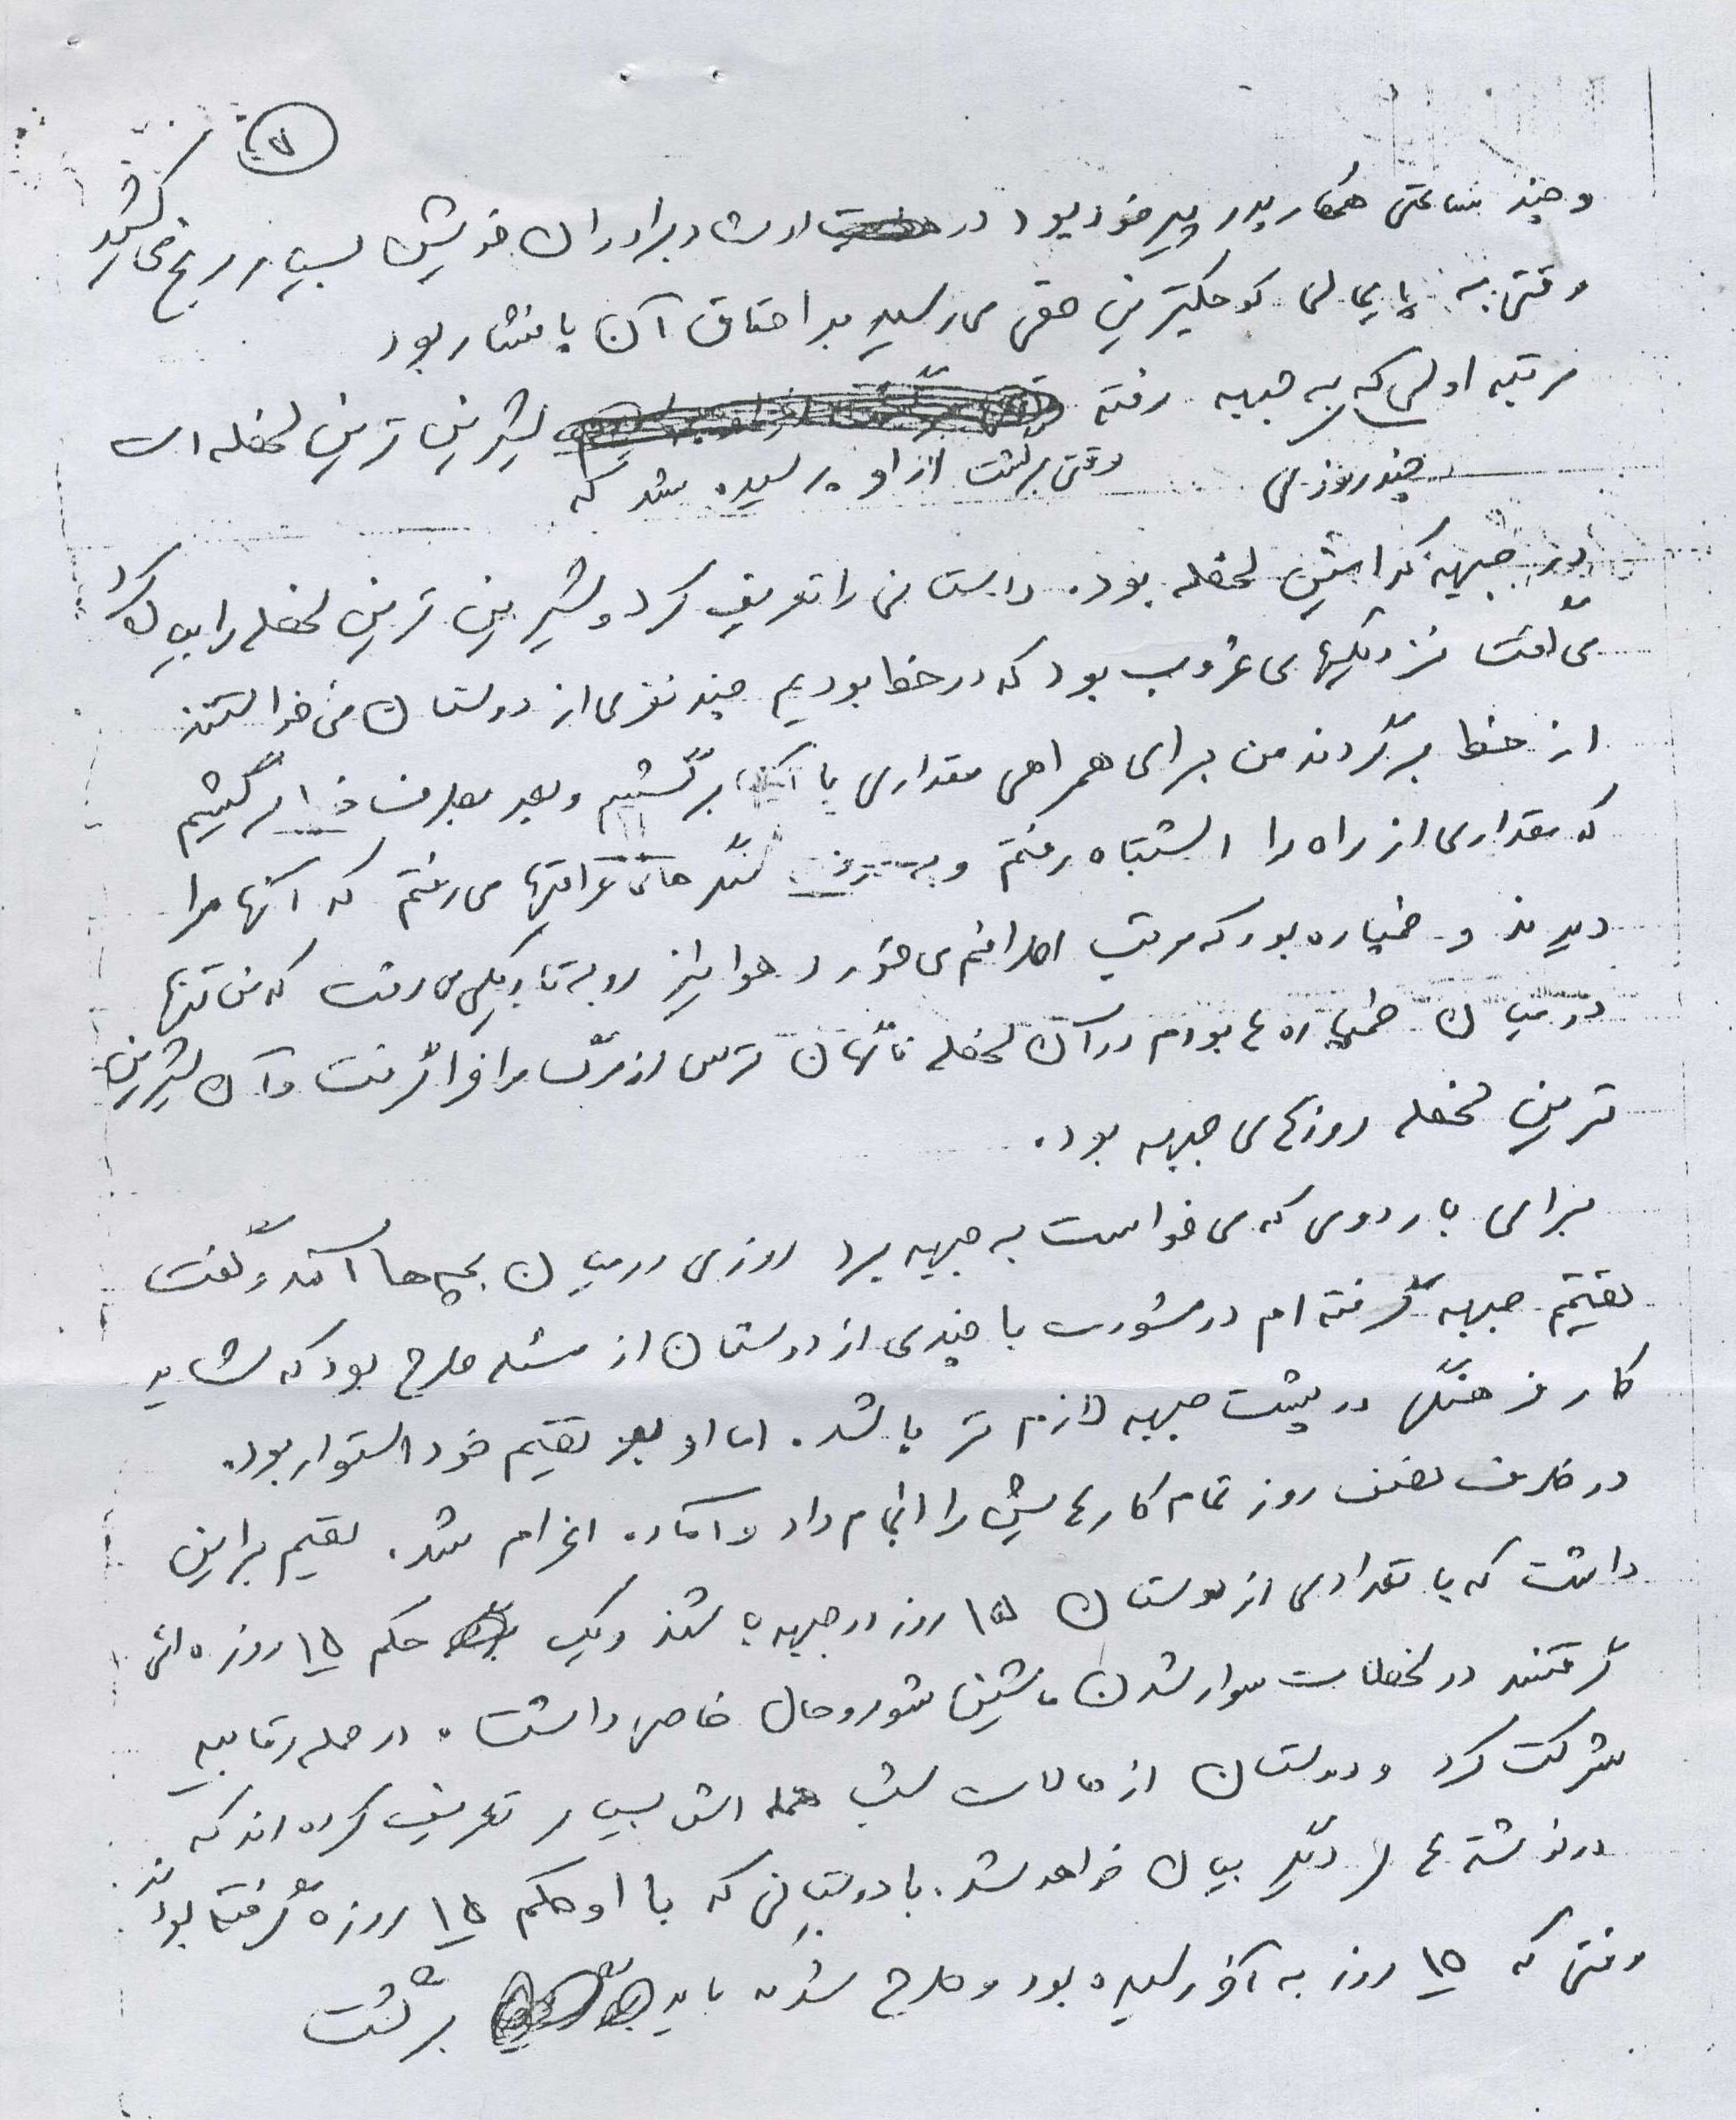 ۷
و چند ساعتی همکار پدر پیر خود بود در ارشاد برادران خویش بسیار رنج می کشید
وقتی به پایمالی کوچکترین حقی می رسید بر احقاق آن پافشار بود
مرتبه اولی که به جبهه رفته شیرین ترین لحظه ات
چند روزی وقتی برگشت از او پرسیده شد که
در جبهه کدامین لحظه بود. داستانی را تعریف کرد و شیرین ترین لحظه را بیان کرد
می گفت نزدیکیهای غروب بود که در خط بودیم چند نفری از دوستان می خواستند
از خط برگردند من برای همراهی مقداری با آنها برگشتم و بعد بطرف خط برگشتم
که مقداری از راه را اشتباه رفتم و به طرف سنگرهای عراقیها می رفتم که آنها مرا
دیدند و خمپاره بود که مرتب اطرافم می خورد و هوا نیز رو به تاریکی می رفت که من تنها
در میان خمپاره ها بودم در آن لحظه ناگهان ترس از مرگ مرا فرا گرفت و آن شیرین
ترین لحظه روزهای جبهه بود.
برای بار دومی که می خواست به جبهه برود روزی در میان بچه ها آمد و گفت
تصمیم جبهه گرفته ام در مشورت با چندی از دوستان از مسئله طرح بود که شاید
کار فرهنگی در پشت جبهه لازم تر باشد. اما او بر تصمیم خود استوار بود.
در ظرف نصف روز تمام کارهایش را انجام داد و آماده اعزام شد. تصمیم بر این
داشت که با تعدادی از دوستان ۱۵ روز در جبهه باشند و یک حکم ۱۵ روزه ائی
گرفتند در لحظات سوار شدن ماشین شور و حال خاصی داشت. در حمله رقابیه
شرکت کرد و دوستان از حالات شب حمله اش بسیار تعریف کرده اند که
در نوشته های دیگر بیان خواهد شد. با دوستانی که با او حکم ۱۵ روزه گرفته بودند
وقتی که ۱۵ روز به آخر رسیده بود و طرح شد که باید برگشت